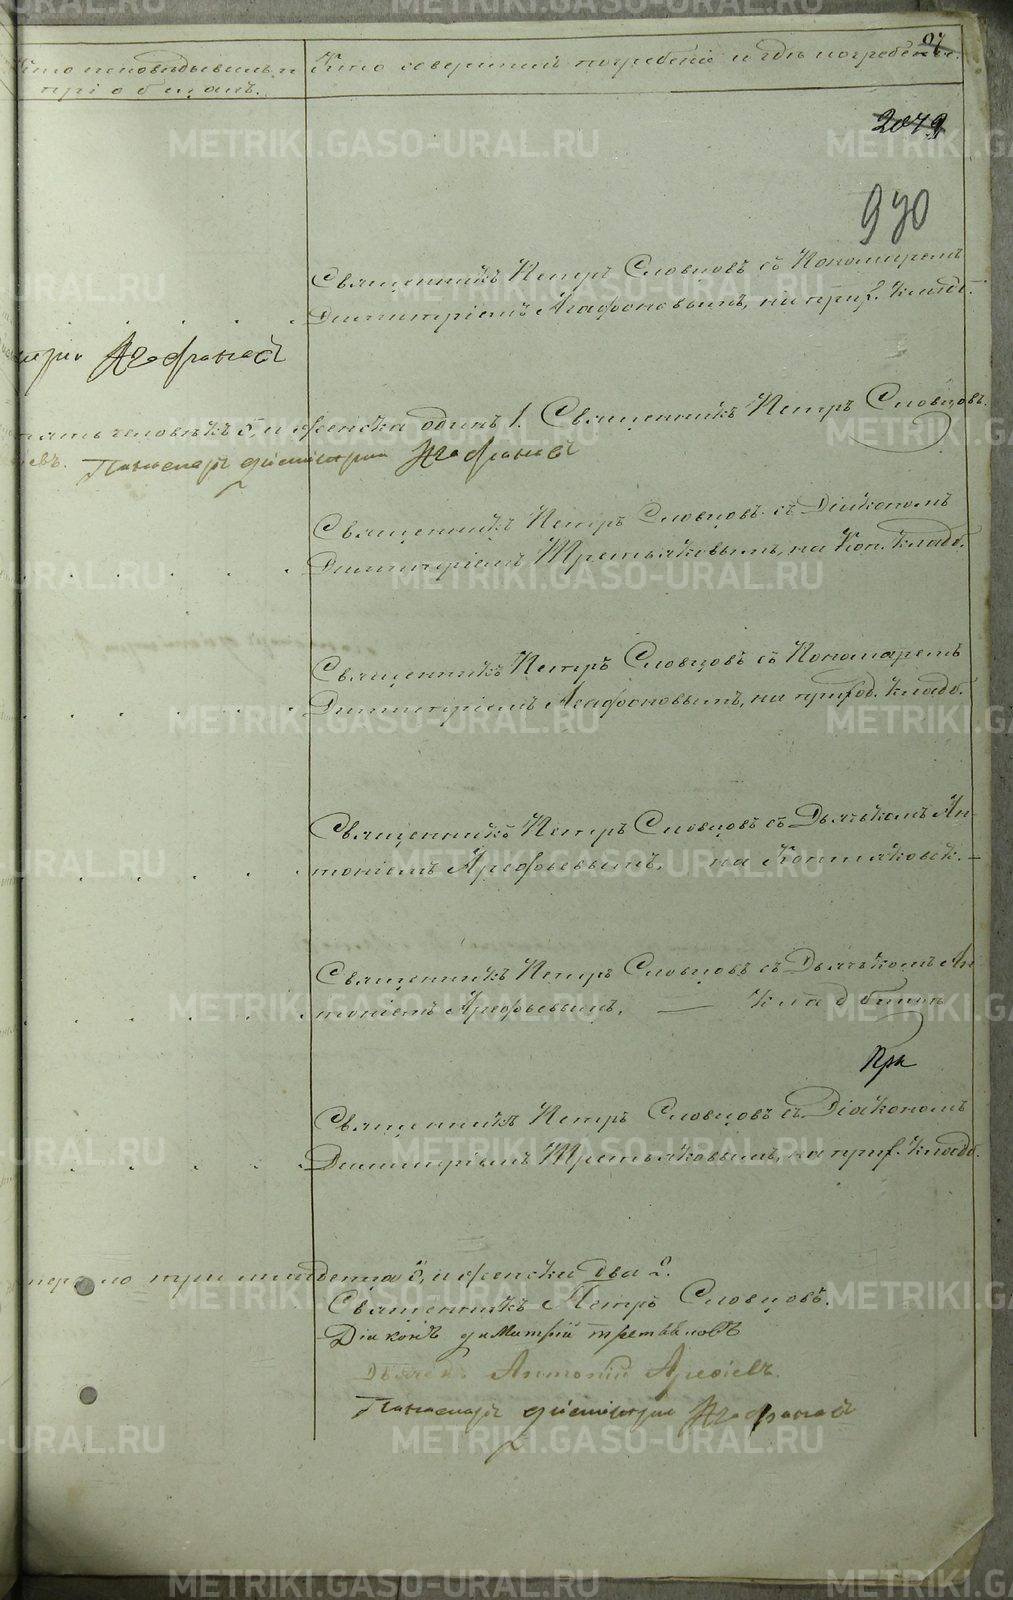 Кто исповѣдывалъ и
пріобщалъ.
Кто совершилъ погребеніе и гдѣ погребены.
2079
930
Священникъ Петръ Словцовъ съ Пономаремъ
Димитріемъ Агафоновымъ, на прих. кладб.
Агафоновъ
пять человѣкъ 5, и женска одинъ 1. Священникъ Петръ Словцовъ.
Пономарь Димитрій Агафоновъ
Священникъ Петръ Словцовъ съ Діакономъ
Димитріемъ Третьяковымъ, на Коп. кладб.
Священникъ Петръ Словцовъ съ Пономаремъ
Димитріемъ Агафоновымъ, на приход. кладб.
Священникъ Петръ Словцовъ съ Дьячкомъ Ан-
тоніемъ Арефьевымъ, на Коптяковск.
Священникъ Петръ Словцовъ съ Дьячкомъ Ан-
тоніемъ Арефьевымъ, — кладбищѣ
Священникъ Петръ Словцовъ съ Діакономъ
Димитріемъ Третьяковымъ, на прих. кладб.
померло три младенца 3, и женска два 2.
Священникъ Петръ Словцовъ.
Діаконъ Димитрій Третьяковъ
Дьячекъ Антоній Арефіевъ.
Пономарь Димитрій Агафоновъ
METRIKI.GASO-URAL.RU